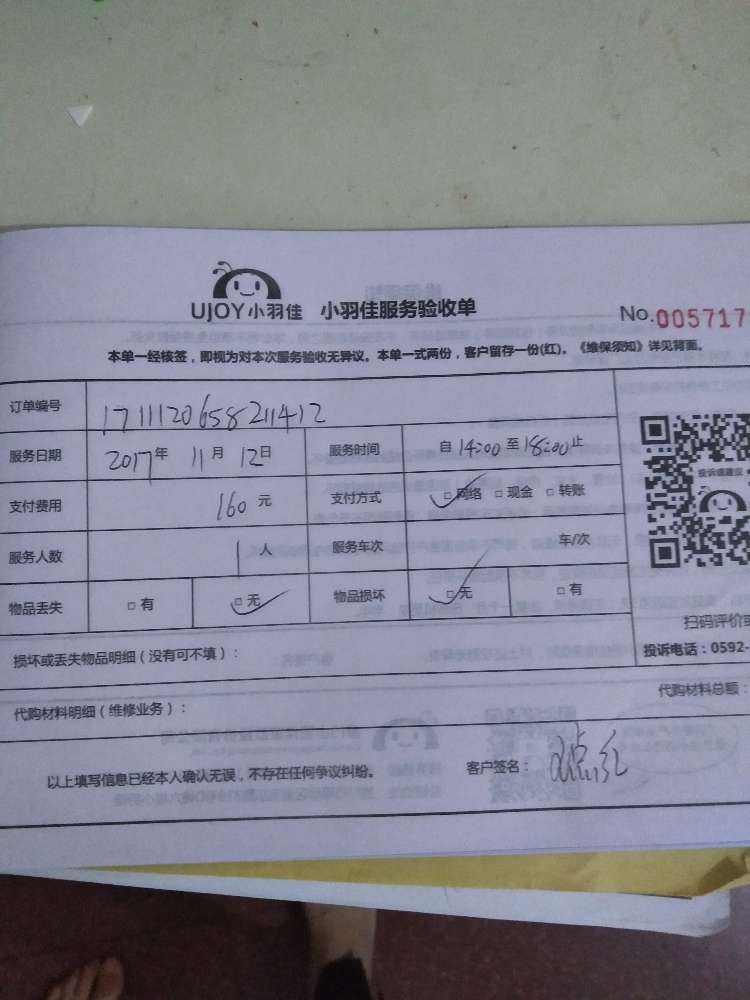 UJOY小羽佳 小羽佳服务验收单 No.005717
本单一经核签，即视为对本次服务验收无异议。本单一式两份，客户留存一份(红)。《维保须知》详见背面。
订单编号 1711120658211412
服务日期 2017年 11月 12日 服务时间 自 14:00 至 18:00 止
投诉或建议
支付费用 160 元 支付方式 □ 网络 □ 现金 □ 转账
服务人数 1 人 服务车次 年/次
物品丢失 □ 有 □ 无 物品损坏 □ 无 □ 有
扫码评价或
损坏或丢失物品明细（没有可不填）：
投诉电话：0592-
代购材料明细（维修业务）： 代购材料总额：
以上填写信息已经本人确认无误，不存在任何争议纠纷。 客户签名：